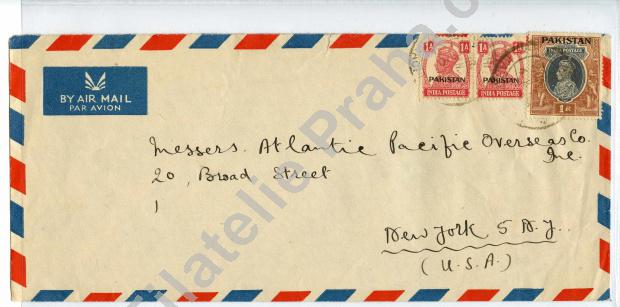 BY AIR MAIL
PAR AVION
1A 1A
PAKISTAN
INDIA POSTAGE
1A 1A
PAKISTAN
INDIA POSTAGE
PAKISTAN
INDIA POSTAGE
1 R
Messers. Atlantic Pacific Overseas Co.
Inc.
20, Broad Street
1
New York 5 N.Y.
(U.S.A.)
Filatelie Praha.c